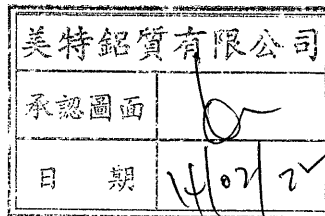 美特鋁質有限公司
承認圖面
日 期 14/02/2